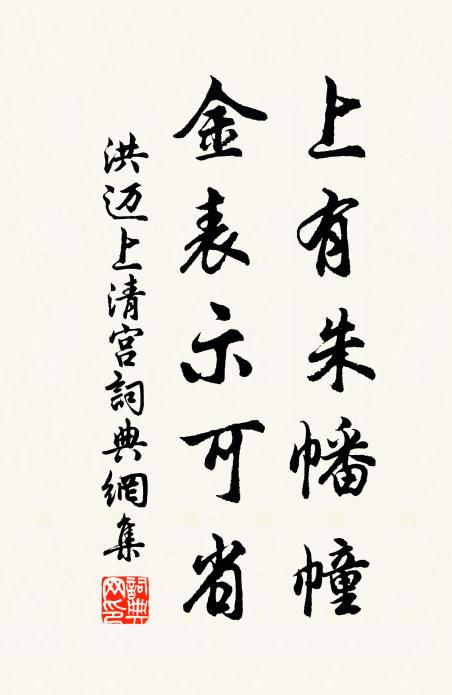 上有朱幡幢
金表示可省
洪迈上清宫詞典網集
詞典網印